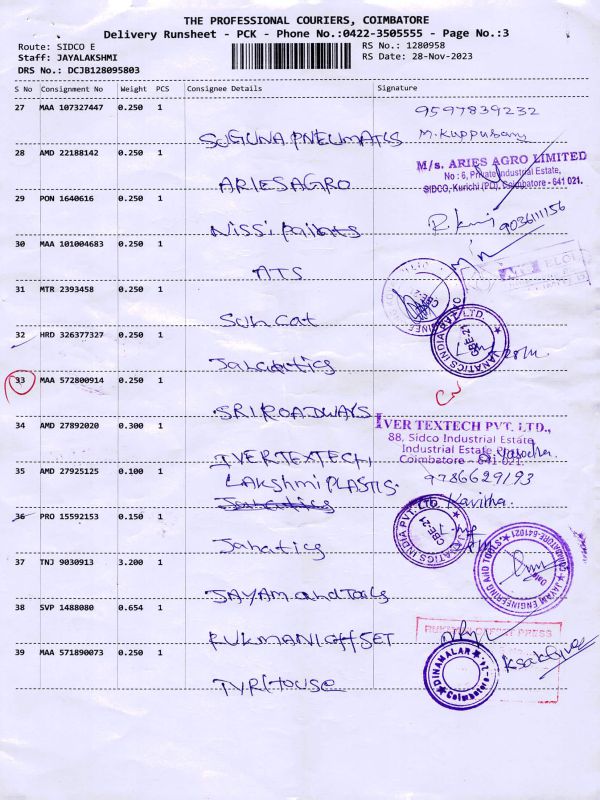 THE PROFESSIONAL COURIERS, COIMBATORE
Delivery Runsheet - PCK - Phone No.:0422-3505555 - Page No.:3
Route: SIDCO E
Staff: JAYALAKSHMI
DRS No.: DCJB128095803
RS No.: 1280958
RS Date: 28-Nov-2023
S No Consignment No Weight PCS Consignee Details Signature
27 MAA 107327447 0.250 1
SUGUNA PNEUMATICS
9597839232
M.Kuppusamy
28 AMD 22188142 0.250 1
ARIES AGRO
M/s. ARIES AGRO LIMITED
No : 6, Private Industrial Estate,
SIDCO, Kurichi (PO), Coimbatore - 641 021.
29 PON 1640616 0.250 1
Nissi Paints
9036111156
30 MAA 101004683 0.250 1
ATS
31 MTR 2393458 0.250 1
Sun cat
32 HRD 326377327 0.250 1
Janatics
JANATICS INDIA PVT. LTD.
CBE-21
33 MAA 572800914 0.250 1
SRI ROADWAYS
34 AMD 27892020 0.300 1
IVERTEXTECH
IVER TEXTECH PVT. LTD.,
88, Sidco Industrial Estate
Industrial Estate
Coimbatore - 641 021.
35 AMD 27925125 0.100 1
LAKSHMI PLASTIS
Janatics
9786629193
Kavitha
36 PRO 15592153 0.150 1
Janatics
JANATICS INDIA PVT. LTD.
CBE-21
37 TNJ 9030913 3.200 1
JAYAM and Tools
JAYAM ENGINEERING AND TOOLS
COIMBATORE-641021
38 SVP 1488080 0.654 1
RUKMANI OFFSET
39 MAA 571890073 0.250 1
TVR House
DINAMALAR
Coimbatore